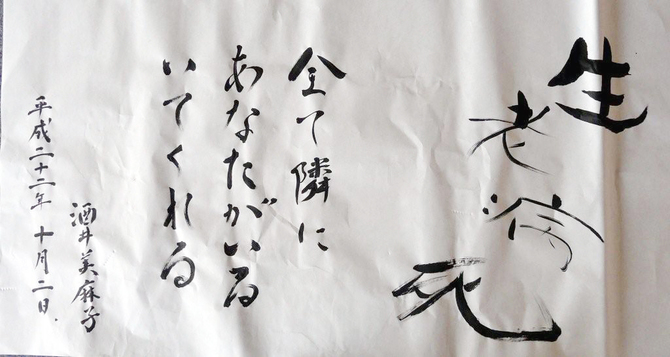 生老病死
全て隣に
あなたがいる
いてくれる
酒井美麻子
平成二十二年 十月二日